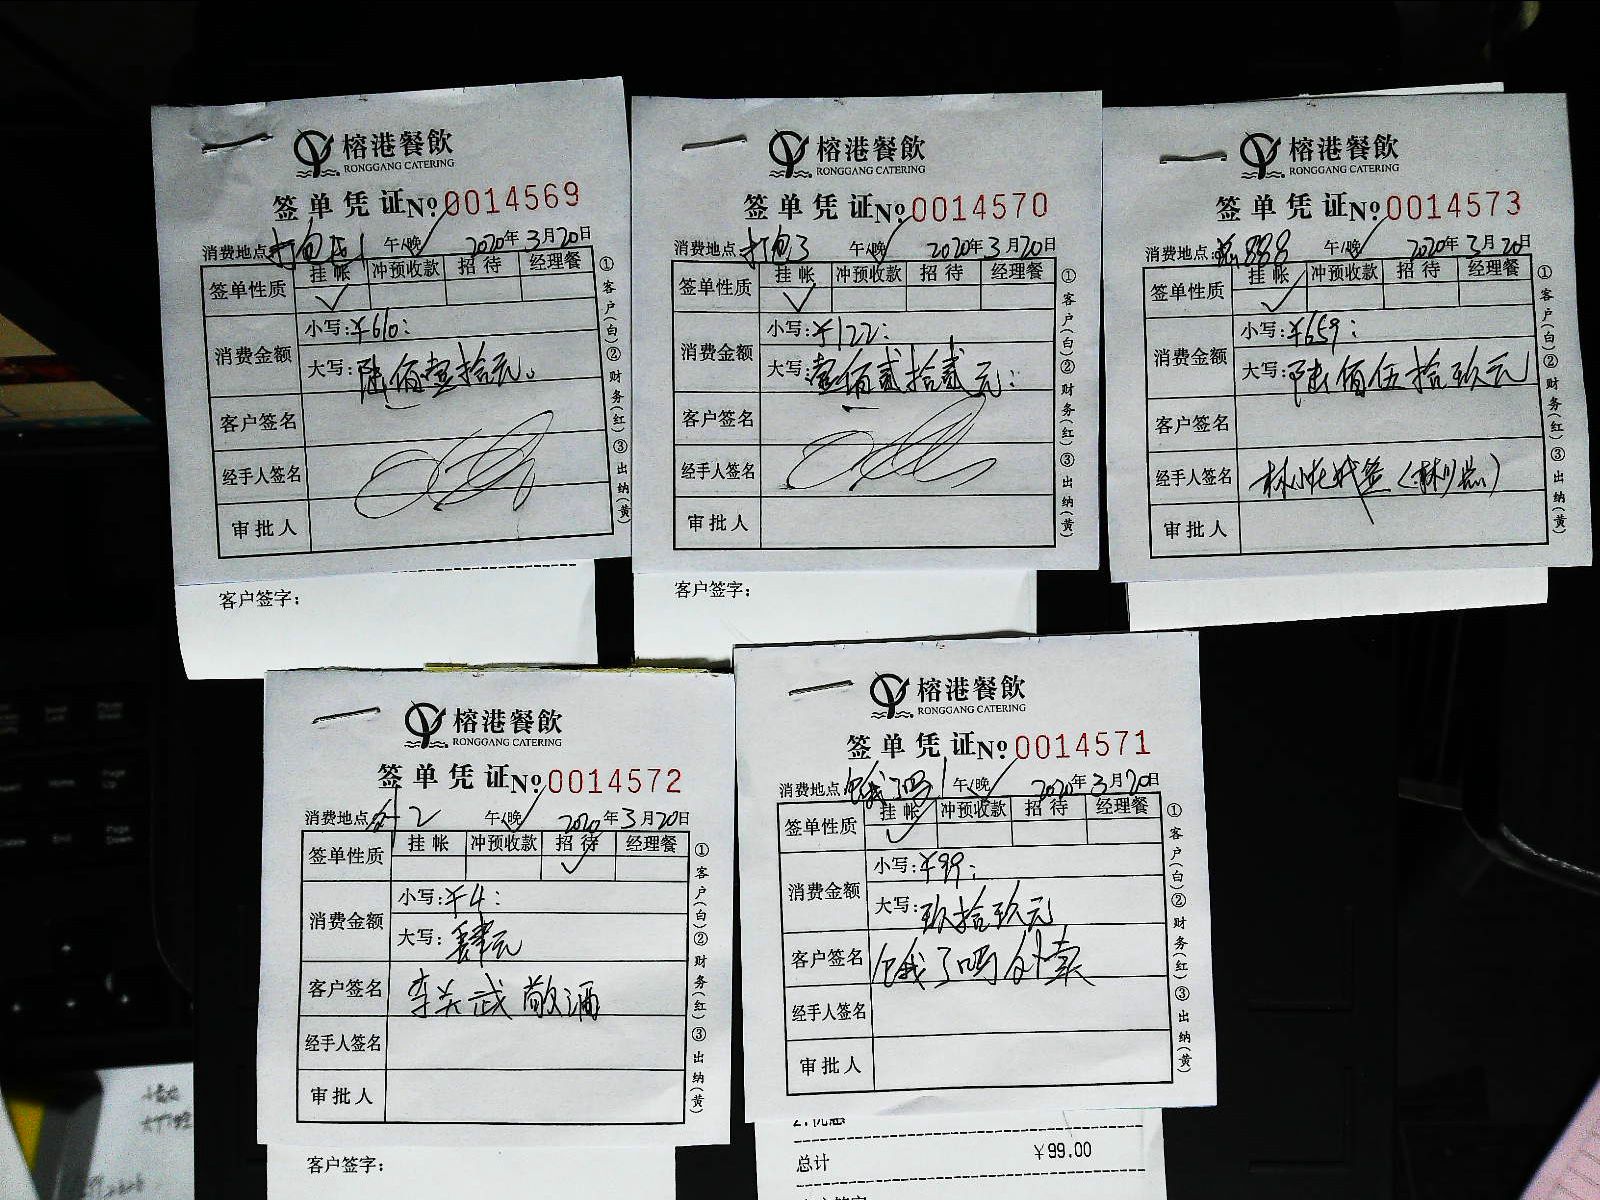 榕港餐飲
RONGGANG CATERING
签单凭证No 0014569
消费地点:打包 1 午/晚 2020年3月20日
签单性质 挂帐 冲预收款 招待 经理餐
消费金额
小写:¥610:
大写:陆佰壹拾元。
客户签名
经手人签名
审批人
①客户(白)②财务(红)③出纳(黄)
客户签字:
榕港餐飲
RONGGANG CATERING
签单凭证No 0014570
消费地点:打包3 午/晚 2020年3月20日
签单性质 挂帐 冲预收款 招待 经理餐
消费金额
小写:¥122:
大写:壹佰贰拾贰元:
客户签名
经手人签名
审批人
①客户(白)②财务(红)③出纳(黄)
客户签字:
榕港餐飲
RONGGANG CATERING
签单凭证No 0014573
消费地点: 888 午/晚 2020年3月20日
签单性质 挂帐 冲预收款 招待 经理餐
消费金额
小写:¥659:
大写:陆佰伍拾玖元
客户签名
经手人签名 林小 签(林 )
审批人
①客户(白)②财务(红)③出纳(黄)
榕港餐飲
RONGGANG CATERING
签单凭证No 0014572
消费地点:外2 午/晚 2020年3月20日
签单性质 挂帐 冲预收款 招待 经理餐
消费金额
小写:¥4:
大写:肆元
客户签名 李关武敬酒
经手人签名
审批人
①客户(白)②财务(红)③出纳(黄)
客户签字:
榕港餐飲
RONGGANG CATERING
签单凭证No 0014571
消费地点:饿了吗1 午/晚 2020年3月20日
签单性质 挂帐 冲预收款 招待 经理餐
消费金额
小写:¥99:
大写:玖拾玖元
客户签名 饿了吗外卖
经手人签名
审批人
①客户(白)②财务(红)③出纳(黄)
2.优惠
总计 ¥99.00